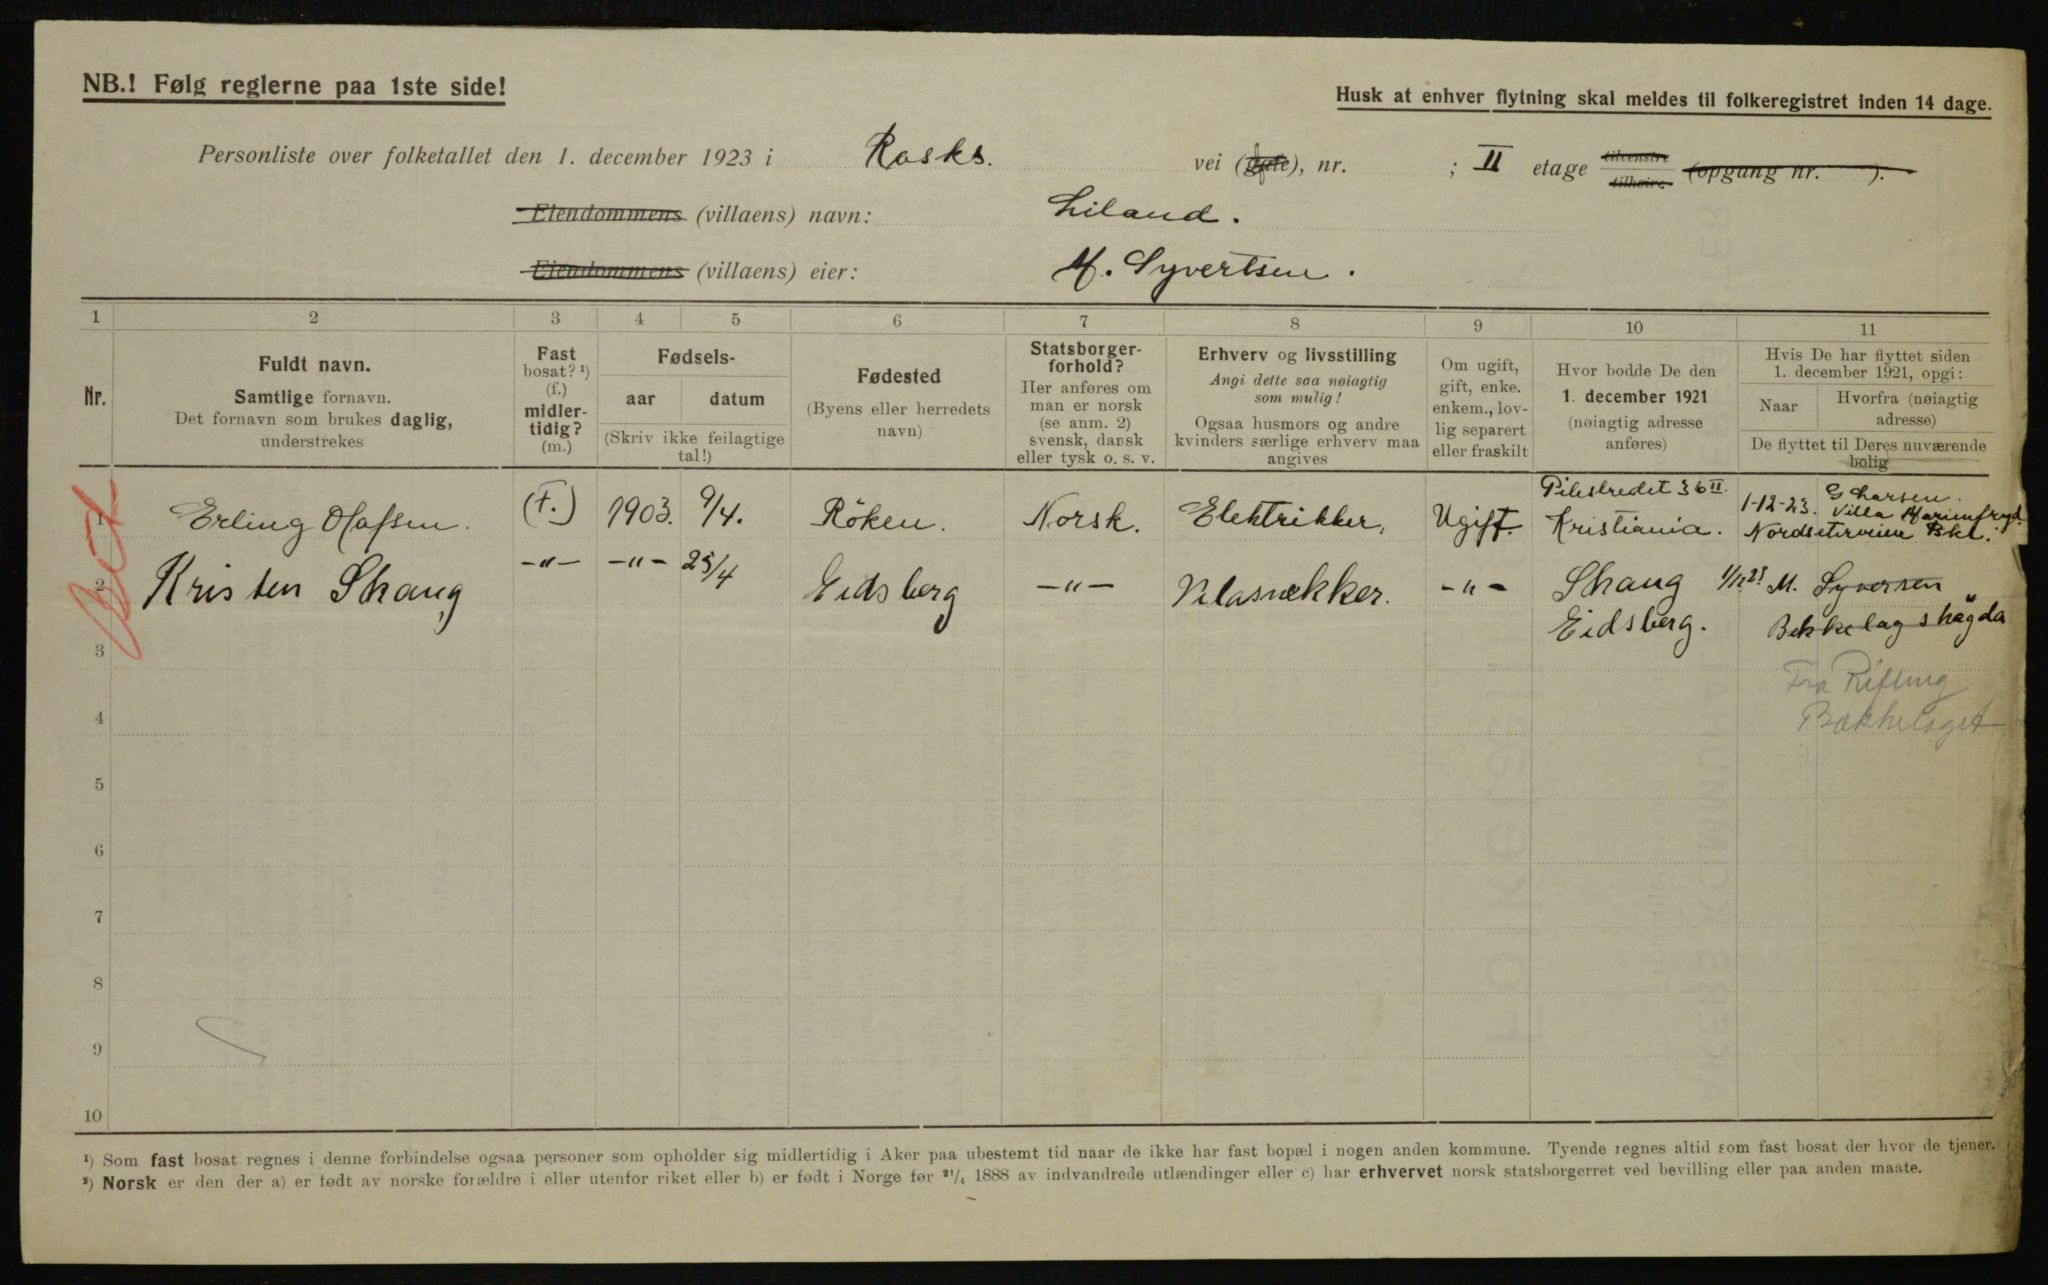 NB.! Følg reglerne paa 1ste side!
Husk at enhver flytning skal meldes til folkeregistret inden 14 dage.
Personliste over folketallet den 1. december 1923 i Rasks. vei (gate), nr. ; II etage tilvenstre tilhøire (opgang nr. ).
Eiendommens (villaens) navn: Liland.
Eiendommens (villaens) eier: M. Syvertsen.
1 2 3 4 5 6 7 8 9 10 11
Nr.
Fuldt navn.
Samtlige fornavn.
Det fornavn som brukes daglig,
understrekes
Fast
bosat? ¹)
(f.)
midler-
tidig?
(m.)
Fødsels-
aar datum
(Skriv ikke feilagtige
tal!)
Fødested
(Byens eller herredets
navn)
Statsborger-
forhold?
Her anføres om
man er norsk
(se anm. 2)
svensk, dansk
eller tysk o. s. v.
Erhverv og livsstilling
Angi dette saa nøiagtig
som mulig!
Ogsaa husmors og andre
kvinders særlige erhverv maa
angives
Om ugift,
gift, enke.
enkem., lov-
lig separert
eller fraskilt
Hvor bodde De den
1. december 1921
(nøiagtig adresse
anføres)
Hvis De har flyttet siden
1. december 1921, opgi:
Naar Hvorfra (nøiagtig
adresse)
De flyttet til Deres nuværende
bolig
1 Erling Olafsen. (F.) 1903. 9/4. Röken. Norsk. Elektrikker, Ugift. Pilestredet 36 II. Kristiania. 1-12-23. G Larsen. Villa Marienfryd Nordseterveien Bkl.
2 Kristen Skaug -"- -"- 25/4 Eidsberg -"- -"- Skaug Eidsberg. M. Syversen Bekkelagshøgda
Fra
Bækkelaget
3
4
5
6
7
8
9
10
¹) Som fast bosat regnes i denne forbindelse ogsaa personer som opholder sig midlertidig i Aker paa ubestemt tid naar de ikke har fast bopæl i nogen anden kommune. Tyende regnes altid som fast bosat der hvor de tjener.
²) Norsk er den der a) er født av norske forældre i eller utenfor riket eller b) er født i Norge før ²¹/₄ 1888 av indvandrede utlændinger eller c) har erhvervet norsk statsborgerret ved bevilling eller paa anden maate.